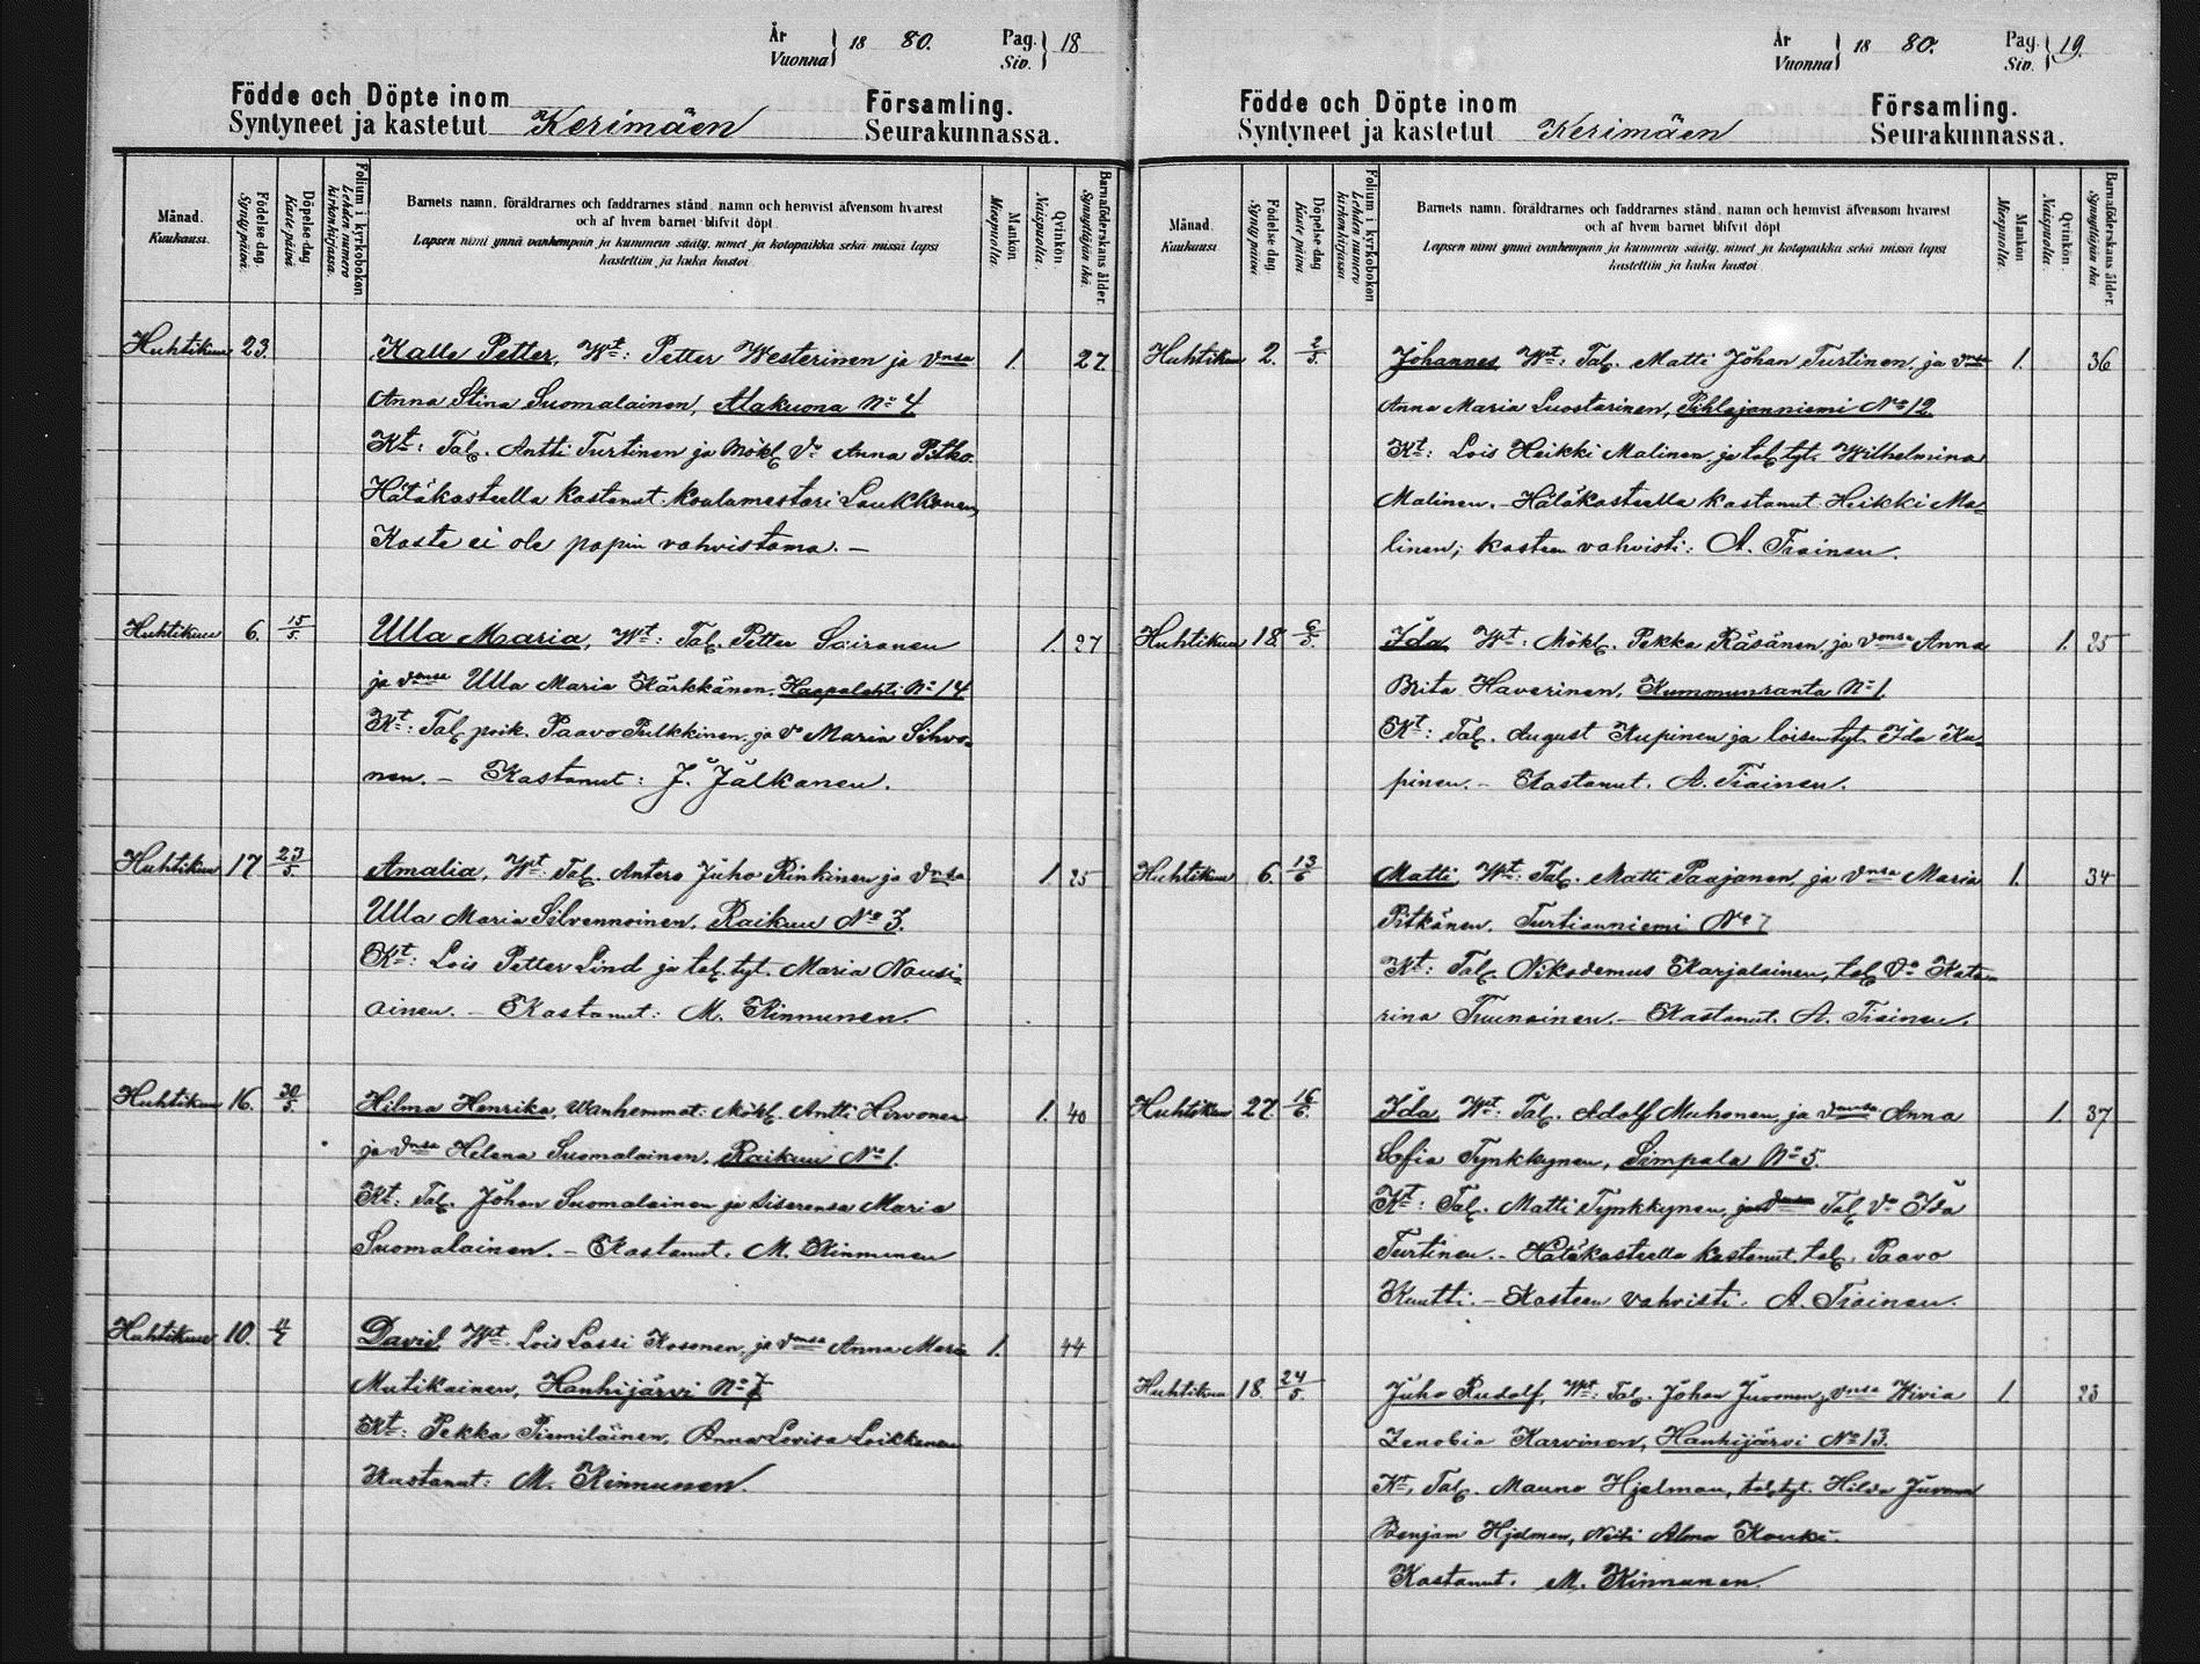 År Vuonna } 18 80. Pag. Siv. } 18
Födde och Döpte inom Församling.
Syntyneet ja kastetut Kerimäen Seurakunnassa.
Månad. Kuukausi.
Födelse dag. Synty päivä.
Döpelse dag Kaste päivä
Folium i kyrkoboken Lehden numero kirkonkirjassa.
Barnets namn, föräldrarnes och faddrarnes stånd, namn och hemvist äfvensom hvarest
och af hvem barnet blifvit döpt.
Lapsen nimi ynnä vanhempain ja kummein sääty, nimet ja kotopaikka sekä missä lapsi
kastettiin ja kuka kastoi
Mankön Miespuolia.
Qvinkön. Naispuolia.
Barnaföderskans ålder. Synnyttäjän ikä.
Huhtikuu 23. Kalle Petter, Wt: Petter Westerinen ja vnsa 1. 27.
Anna Stina Suomalainen, Alakuona No 4
Kt: Tal. Antti Turtinen ja Mökl. Vo Anna Pitko.
Hätäkasteella kastanut koulumestari Laukkanen,
Kaste ei ole papin vahvistama. –
Huhtikuu 6. 15/5. Ulla Maria, Wt: Tal. Petter Sairanen 1. 27
ja vonsa Ulla Maria Kärkkänen. Haapalahti No 14
Kt: Tal. poik. Paavo Pulkkinen, ja Vo Maria Silvo-
nen. – Kastanut: J. Jälkanen.
Huhtikuu 17 23/5 Amalia, Wt: Tal. Antero Juho Rinkinen ja Vnsa 1. 25
Ulla Maria Silvennoinen. Raikuu No 3.
Kt: Lois Petter Lind ja tal. tyt. Maria Nousi-
ainen. – Kastanut: M. Kinnunen.
Huhtikuu 16. 30/5. Hilma Henrika, Wanhemmat: Mökl. Antti Hirvonen 1. 40
ja Vnsa Helena Suomalainen. Raikuu No 1.
Kt: Tal. Johan Suomalainen ja sisarensa Maria
Suomalainen. – Kastanut. M. Kinnunen
Huhtikuu 10. David, Wt. Lois Lassi Kosonen, ja Vonsa Anna Maria 1. 44
Mutikainen, Hanhijärvi No 7
Kt: Pekka Piemiläinen, Anna Lovisa Loikkanen
Kastanut: M. Kinnunen.
År Vuonna } 18 80. Pag. Siv. } 19.
Födde och Döpte inom Församling.
Syntyneet ja kastetut Kerimäen Seurakunnassa.
Månad. Kuukausi
Födelse dag Synty päivä
Döpelse dag Kaste päivä
Folium i kyrkoboken Lehden numero kirkonkirjassa
Barnets namn, föräldrarnes och faddrarnes stånd, namn och hemvist äfvensom hvarest
och af hvem barnet blifvit döpt
Lapsen nimi ynnä vanhempain ja kummein sääty, nimet ja kotopaikka sekä missä lapsi
kastettiin ja kuka kastoi
Mankön Miespuolia.
Qvinkön. Naispuolia.
Barnaföderskans ålder. Synnyttäjän ikä
Huhtikuu 2. 2/5. Johannes, Wt: Tal. Matti Johan Turtinen, ja Vnsa 1. 36
Anna Maria Luostarinen, Pihlajanniemi No 12.
Kt: Lois Heikki Malinen, ja tal. tyt. Wilhelmina
Malinen. – Hätäkasteella kastanut Heikki Ma-
linen; kasteen vahvisti: A. Tiainen.
Huhtikuu 18. 6/5. Ida, Wt: Mökl. Pekka Räsänen, ja vonsa Anna 1. 25
Brita Haverinen, Kummunranta No 1.
Kt: Tal. August Kupinen ja loisentyt. Ida Ku-
pinen. – Kastanut. A. Tiainen.
Huhtikuu 6. 13/6 Matti, Wt: Tal. Matti Paajanen, ja vnsa Maria 1. 34
Pitkänen. Turtianniemi No 7
Kt: Tal. Nikodemus Karjalainen, tal. Vo Kata-
rina Tuunainen. – Kastanut. A. Tiainen.
Huhtikuu 27. 16/6. Ida, Wt: Tal. Adolf Muhonen, ja vonsa Anna 1. 37
Sofia Tynkkynen, Simpala No 5.
Kt: Tal. Matti Tynkkynen, ja Tal. Vo Ida
Turtinen. – Hätäkasteella kastanut tal. Paavo
Kuutti. – Kasteen vahvisti: A. Tiainen.
Huhtikuu 18. 24/5. Juho Rudolf, Wt: Tal. Johan Juvonen, vnsa Wivia 1. 23
Zenobia Karvinen, Hanhijärvi No 13.
Kt, Tal. Mauno Hjelman, tal. tyt. Hilda Juvonen
Benjam Hjelman, Neiti Alma Kouki.
Kastanut. M. Kinnunen.